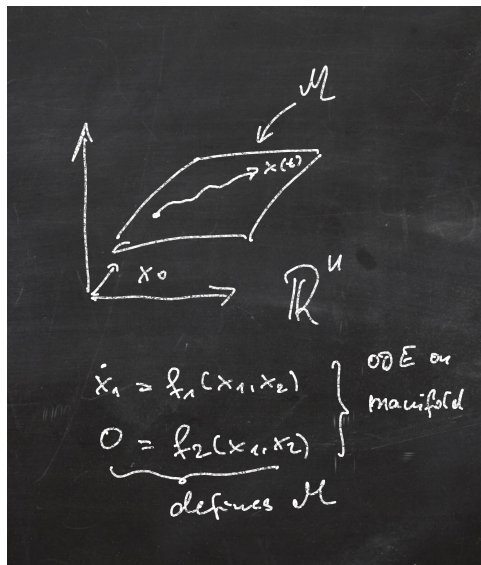 M
x(t)
x0
ℝⁿ
ẋ₁ = f₁(x₁,x₂)
0 = f₂(x₁,x₂)
ODE on
manifold
defines M